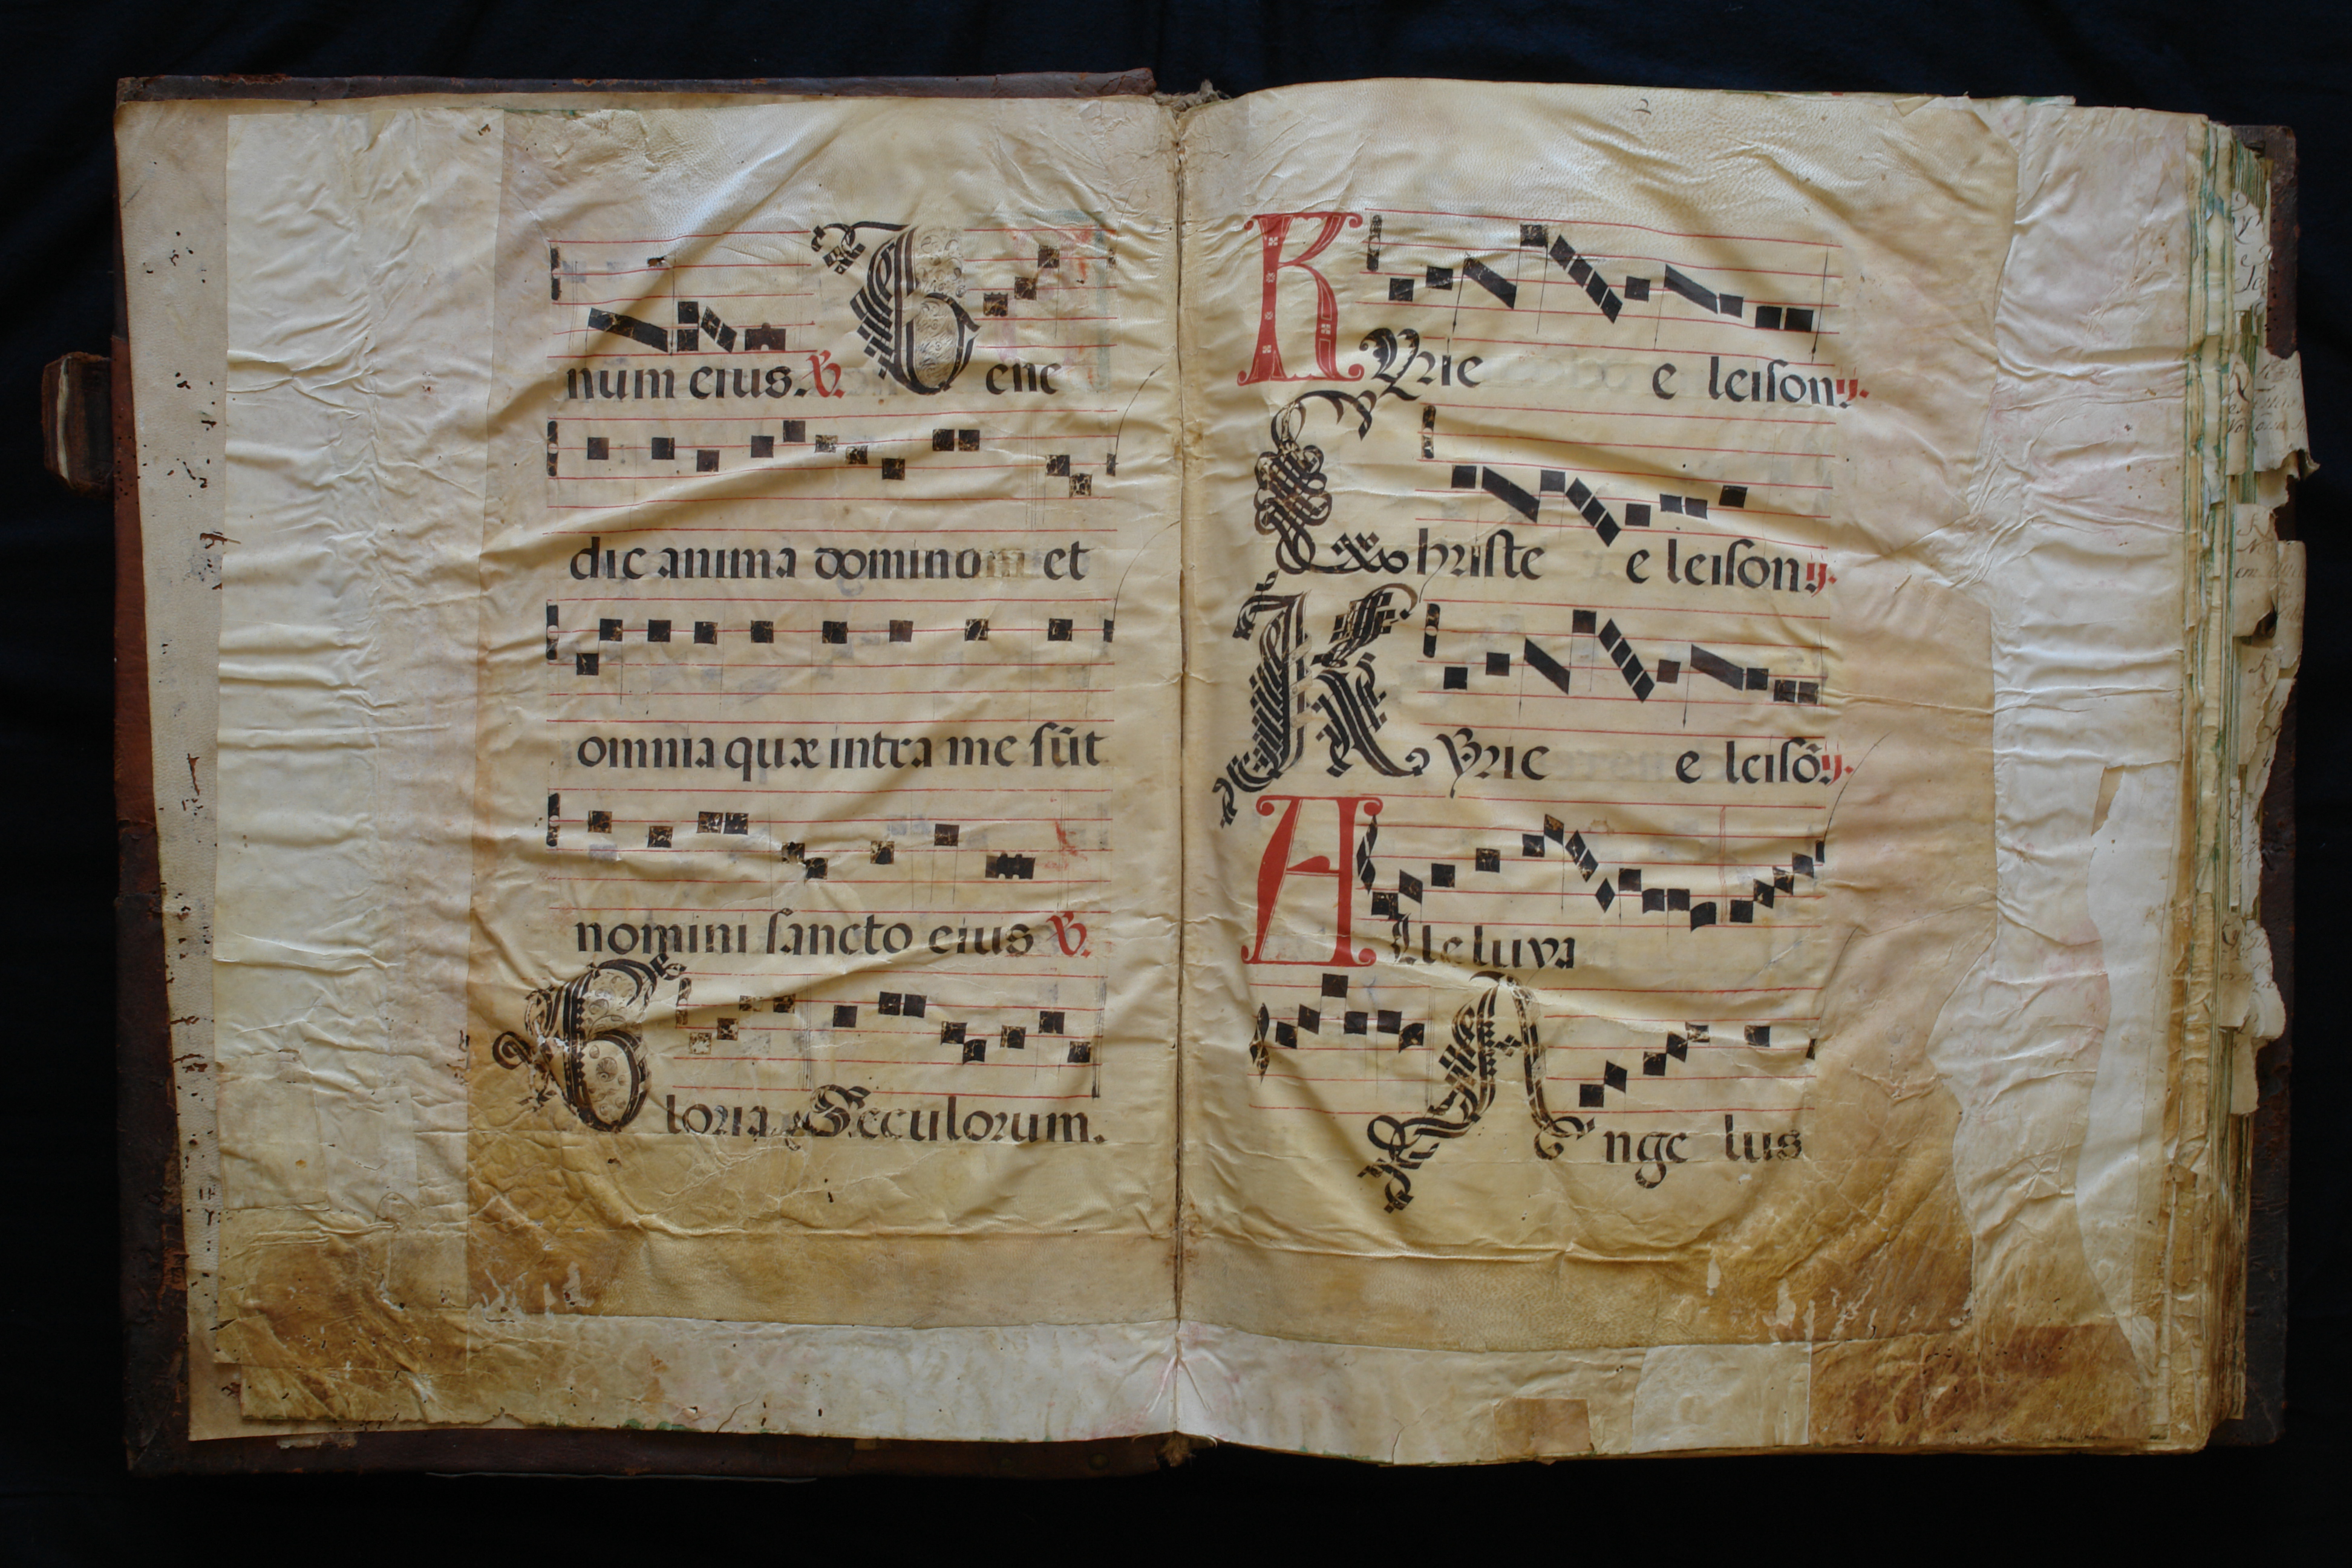 num eius. ℣. Bene
dic anima domino et
omnia quæ intra me sũt
nomini sancto eius ℣.
Gloria Seculorum.
2
KYrie e leison ij.
Christe e leison ij.
Kyrie e leisõ ij.
Alleluya
Ange lus